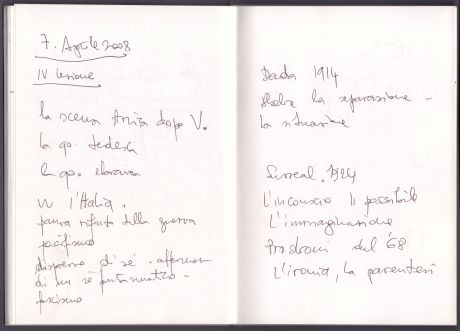 7. Aprile 2008
IV lezione
la scena dopo V.
la qo. tedesca
la qo. ebraica
l'Italia.
paura rifiuto della guerra
pacifismo
disprezzo di sé.
di un sé fantasmatico -
fascismo
Dada 1914
la separazione -
la situazione
Surreal. 1924
L'inconscio Il possibile
L'immaginazione
Prodromi del '68
L'ironia, la parentesi